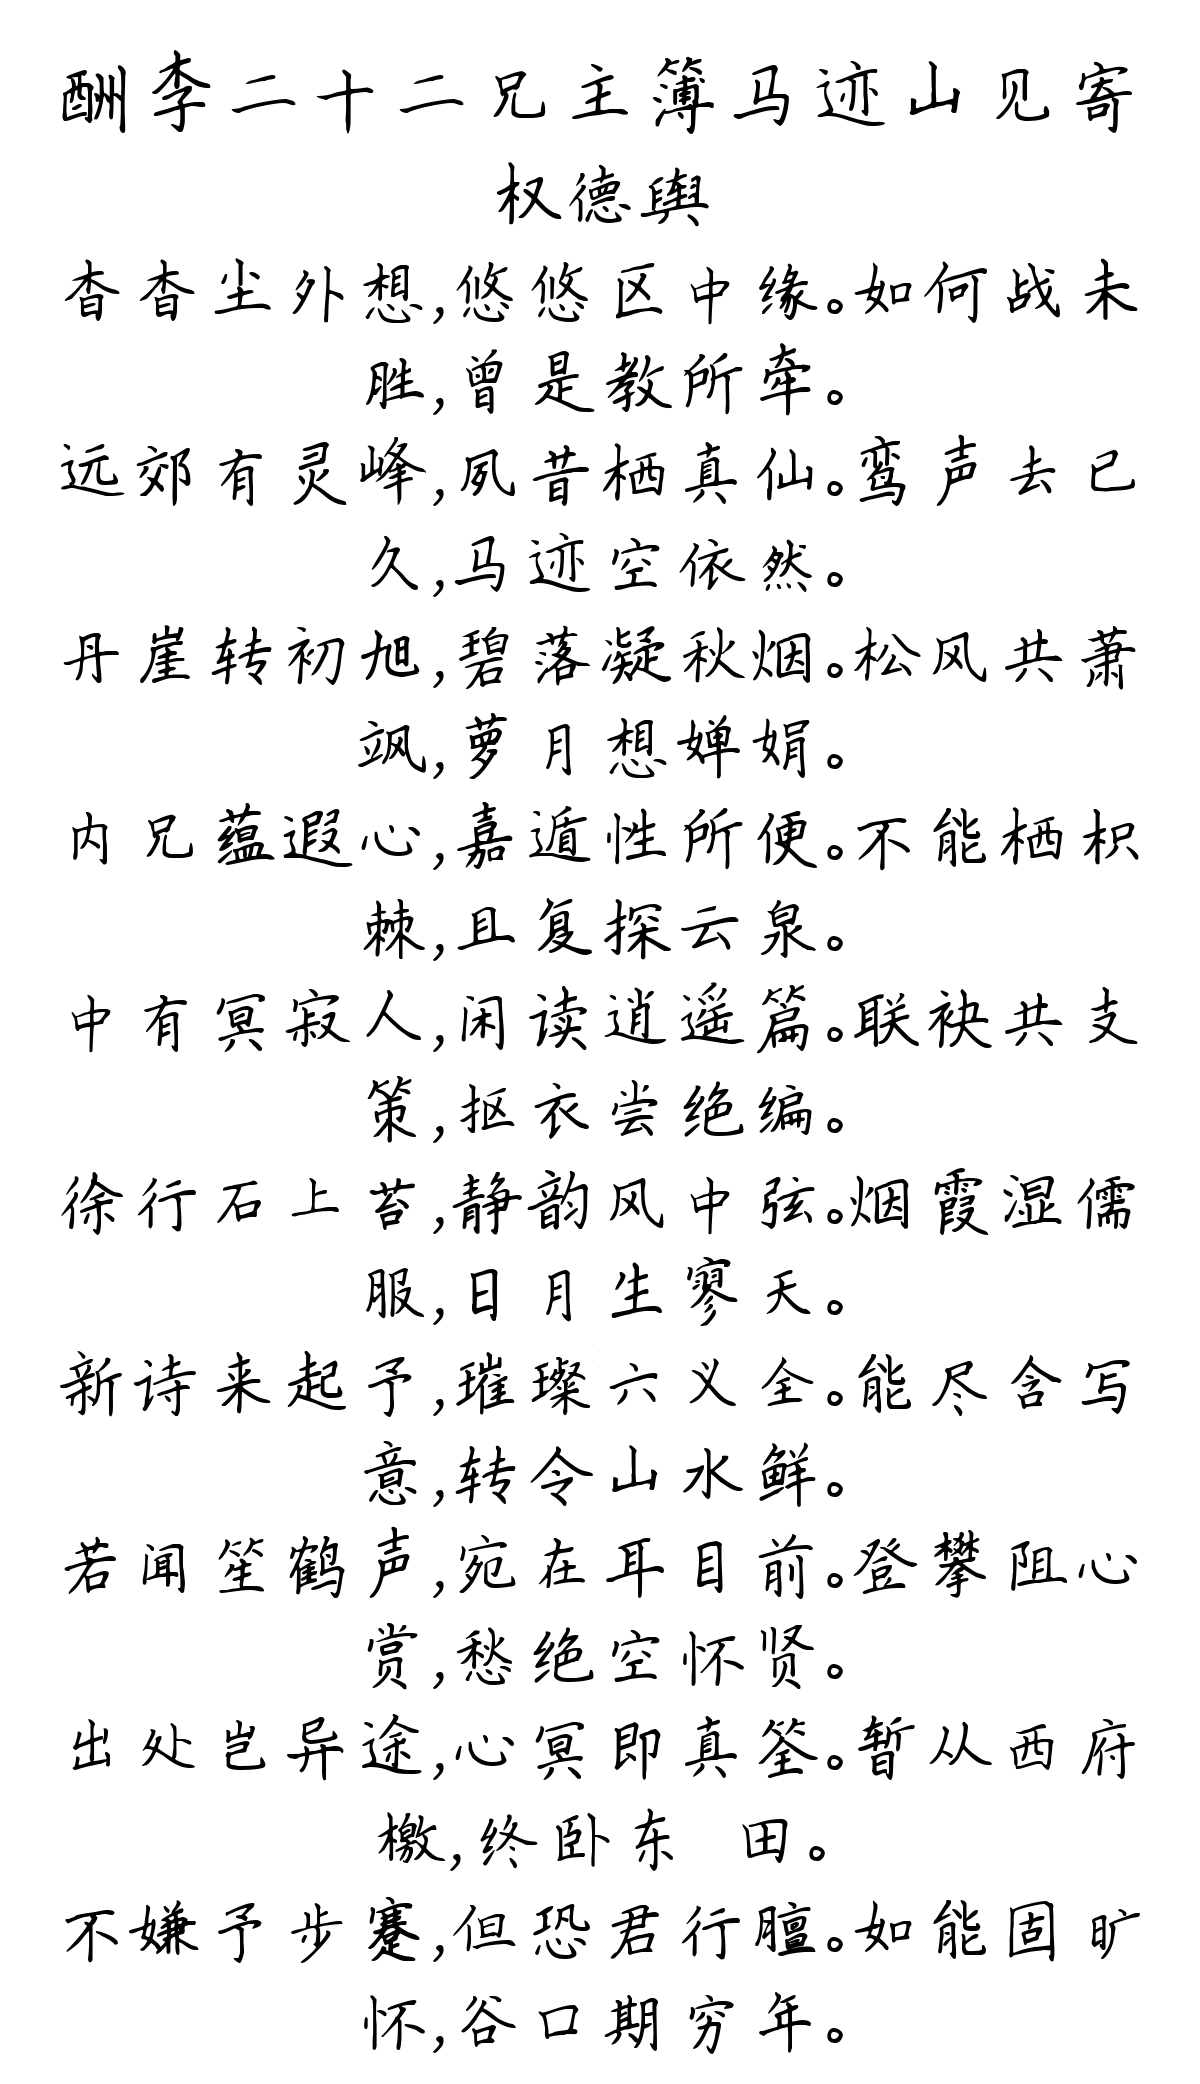 酬李二十二兄主簿马迹山见寄
权德舆
杳杳尘外想,悠悠区中缘。如何战未
胜,曾是教所牵。
远郊有灵峰,夙昔栖真仙。鸾声去已
久,马迹空依然。
丹崖转初旭,碧落凝秋烟。松风共萧
飒,萝月想婵娟。
内兄蕴遐心,嘉遁性所便。不能栖枳
棘,且复探云泉。
中有冥寂人,闲读逍遥篇。联袂共支
策,抠衣尝绝编。
徐行石上苔,静韵风中弦。烟霞湿儒
服,日月生寥天。
新诗来起予,璀璨六义全。能尽含写
意,转令山水鲜。
若闻笙鹤声,宛在耳目前。登攀阻心
赏,愁绝空怀贤。
出处岂异途,心冥即真筌。暂从西府
檄,终卧东 田。
不嫌予步蹇,但恐君行膻。如能固旷
怀,谷口期穷年。